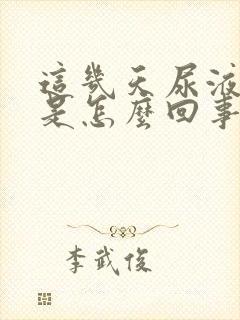 這幾天尿液
是怎麼回事
李武俊